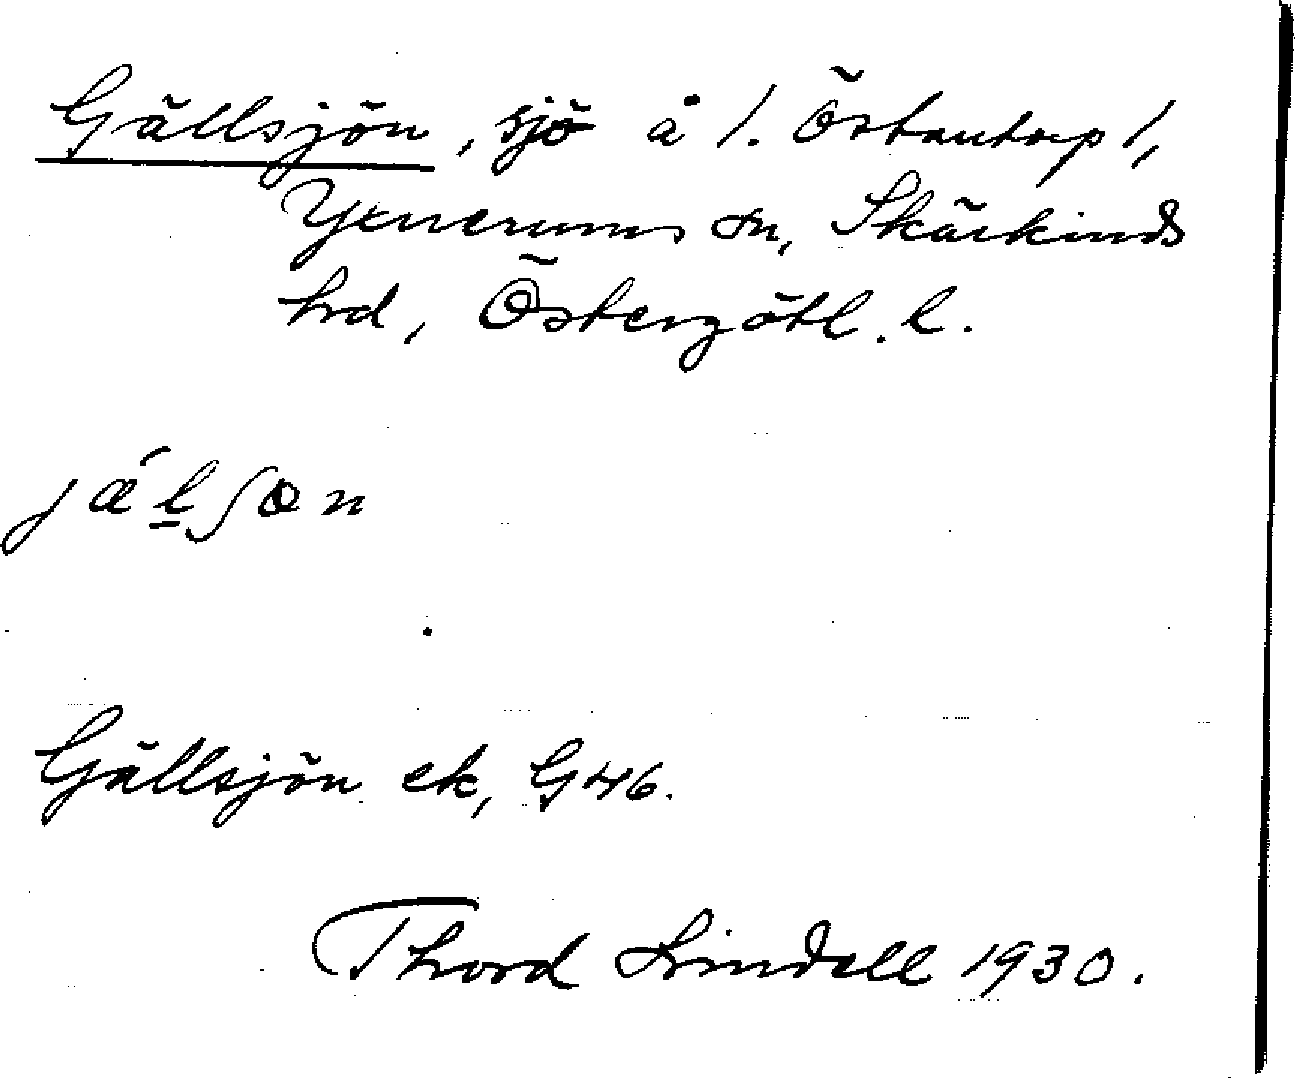 Gällsjön, sjö å 1. Östantorp 1,
Yxnerums sn, Skärkinds
hrd, Östergötl. l.
jǽl̲ʃɵn
Gällsjön ek, G 46.
Thord Lindell 1930.